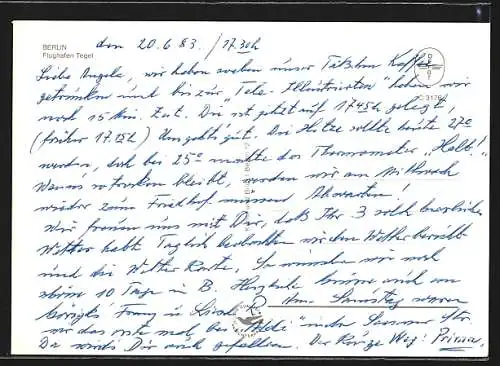 BERLIN
Flughafen Tegel
den 20.6.83 / 17.30h
Liebe Angela, wir haben soeben unser Täßchen Kaffee
getrunken und bis zur "Tele-Illustrierten" haben wir
noch 15 Min. Zeit. Die ist jetzt auf 17.45h gelegt,
(früher 17.15h) Uns geht's gut. Die Hitze sollte heute 27°
werden, doch bei 25° machte das Thermometer "Halt!"
Wenn es so trocken bleibt, werden wir am Mittwoch
wieder zum Friedhof müssen. Abwarten!
Wir freuen uns mit Dir, daß Ihr 3 solch herrliches
Wetter habt. Täglich beobachten wir den Wetterbericht
und die Wetter Karte. So wünschen wir noch
schöne 10 Tage in B. Herzliche Grüße auch an
Am Samstag waren
wir das erste mal bei "Aldi" in der
Da wird's Dir auch gefallen. Der kürzeste Weg: Prima!